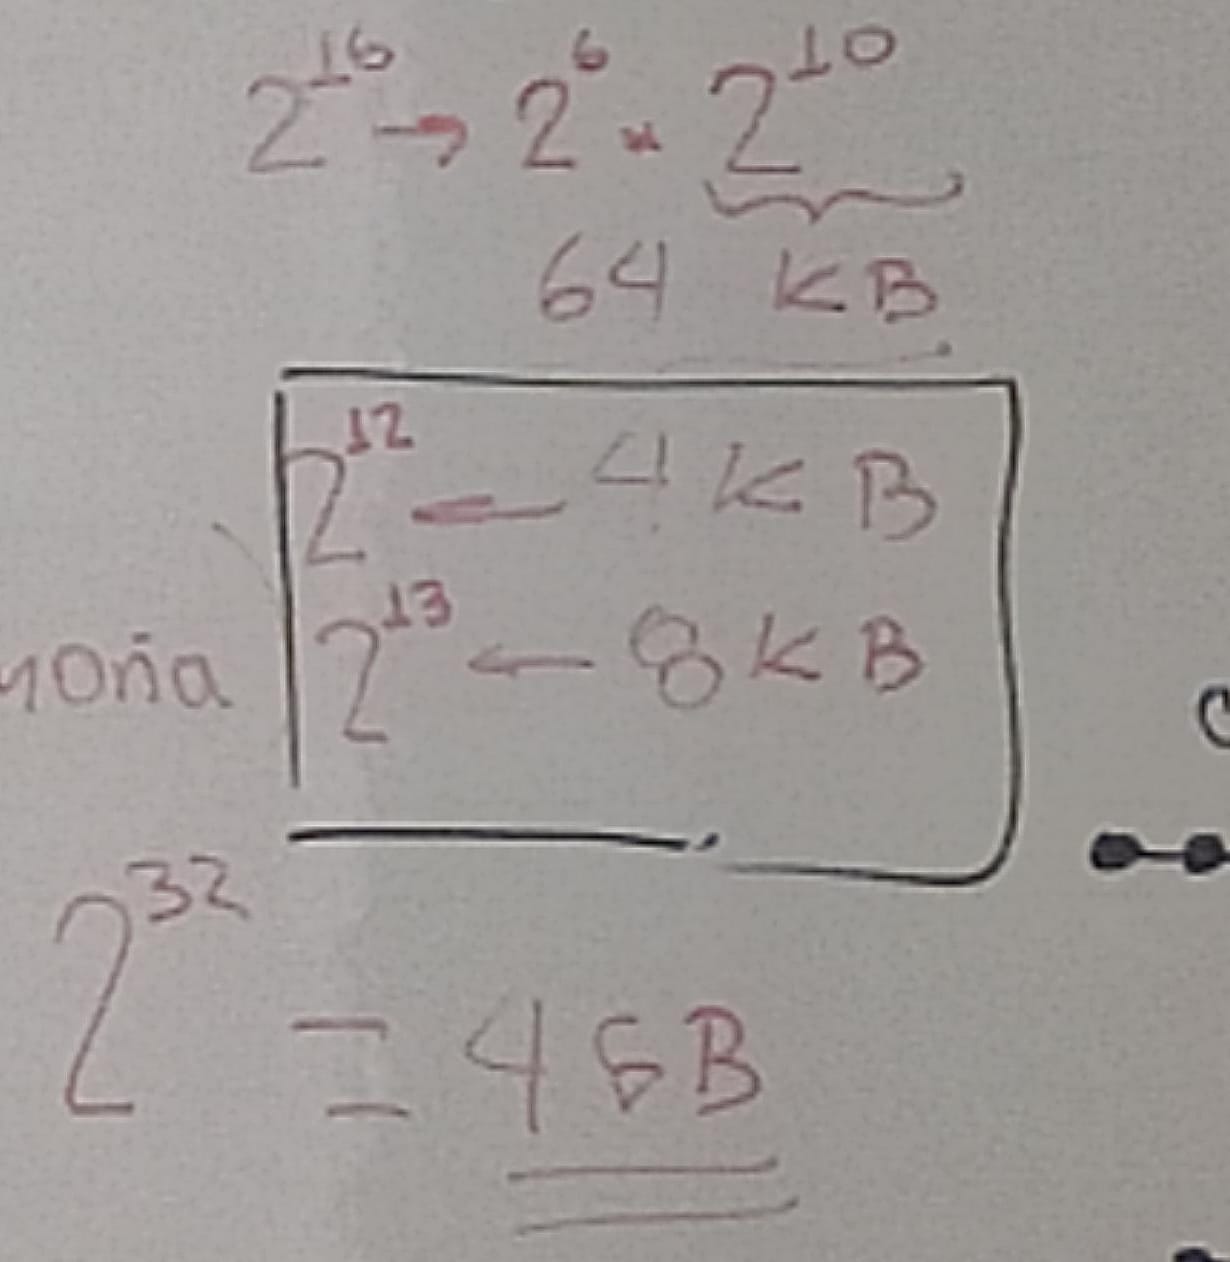 2^16 → 2^6 * 2^10
64 KB
2^12 ← 4 KB
2^13 ← 8 KB
2^32 = 4 GB